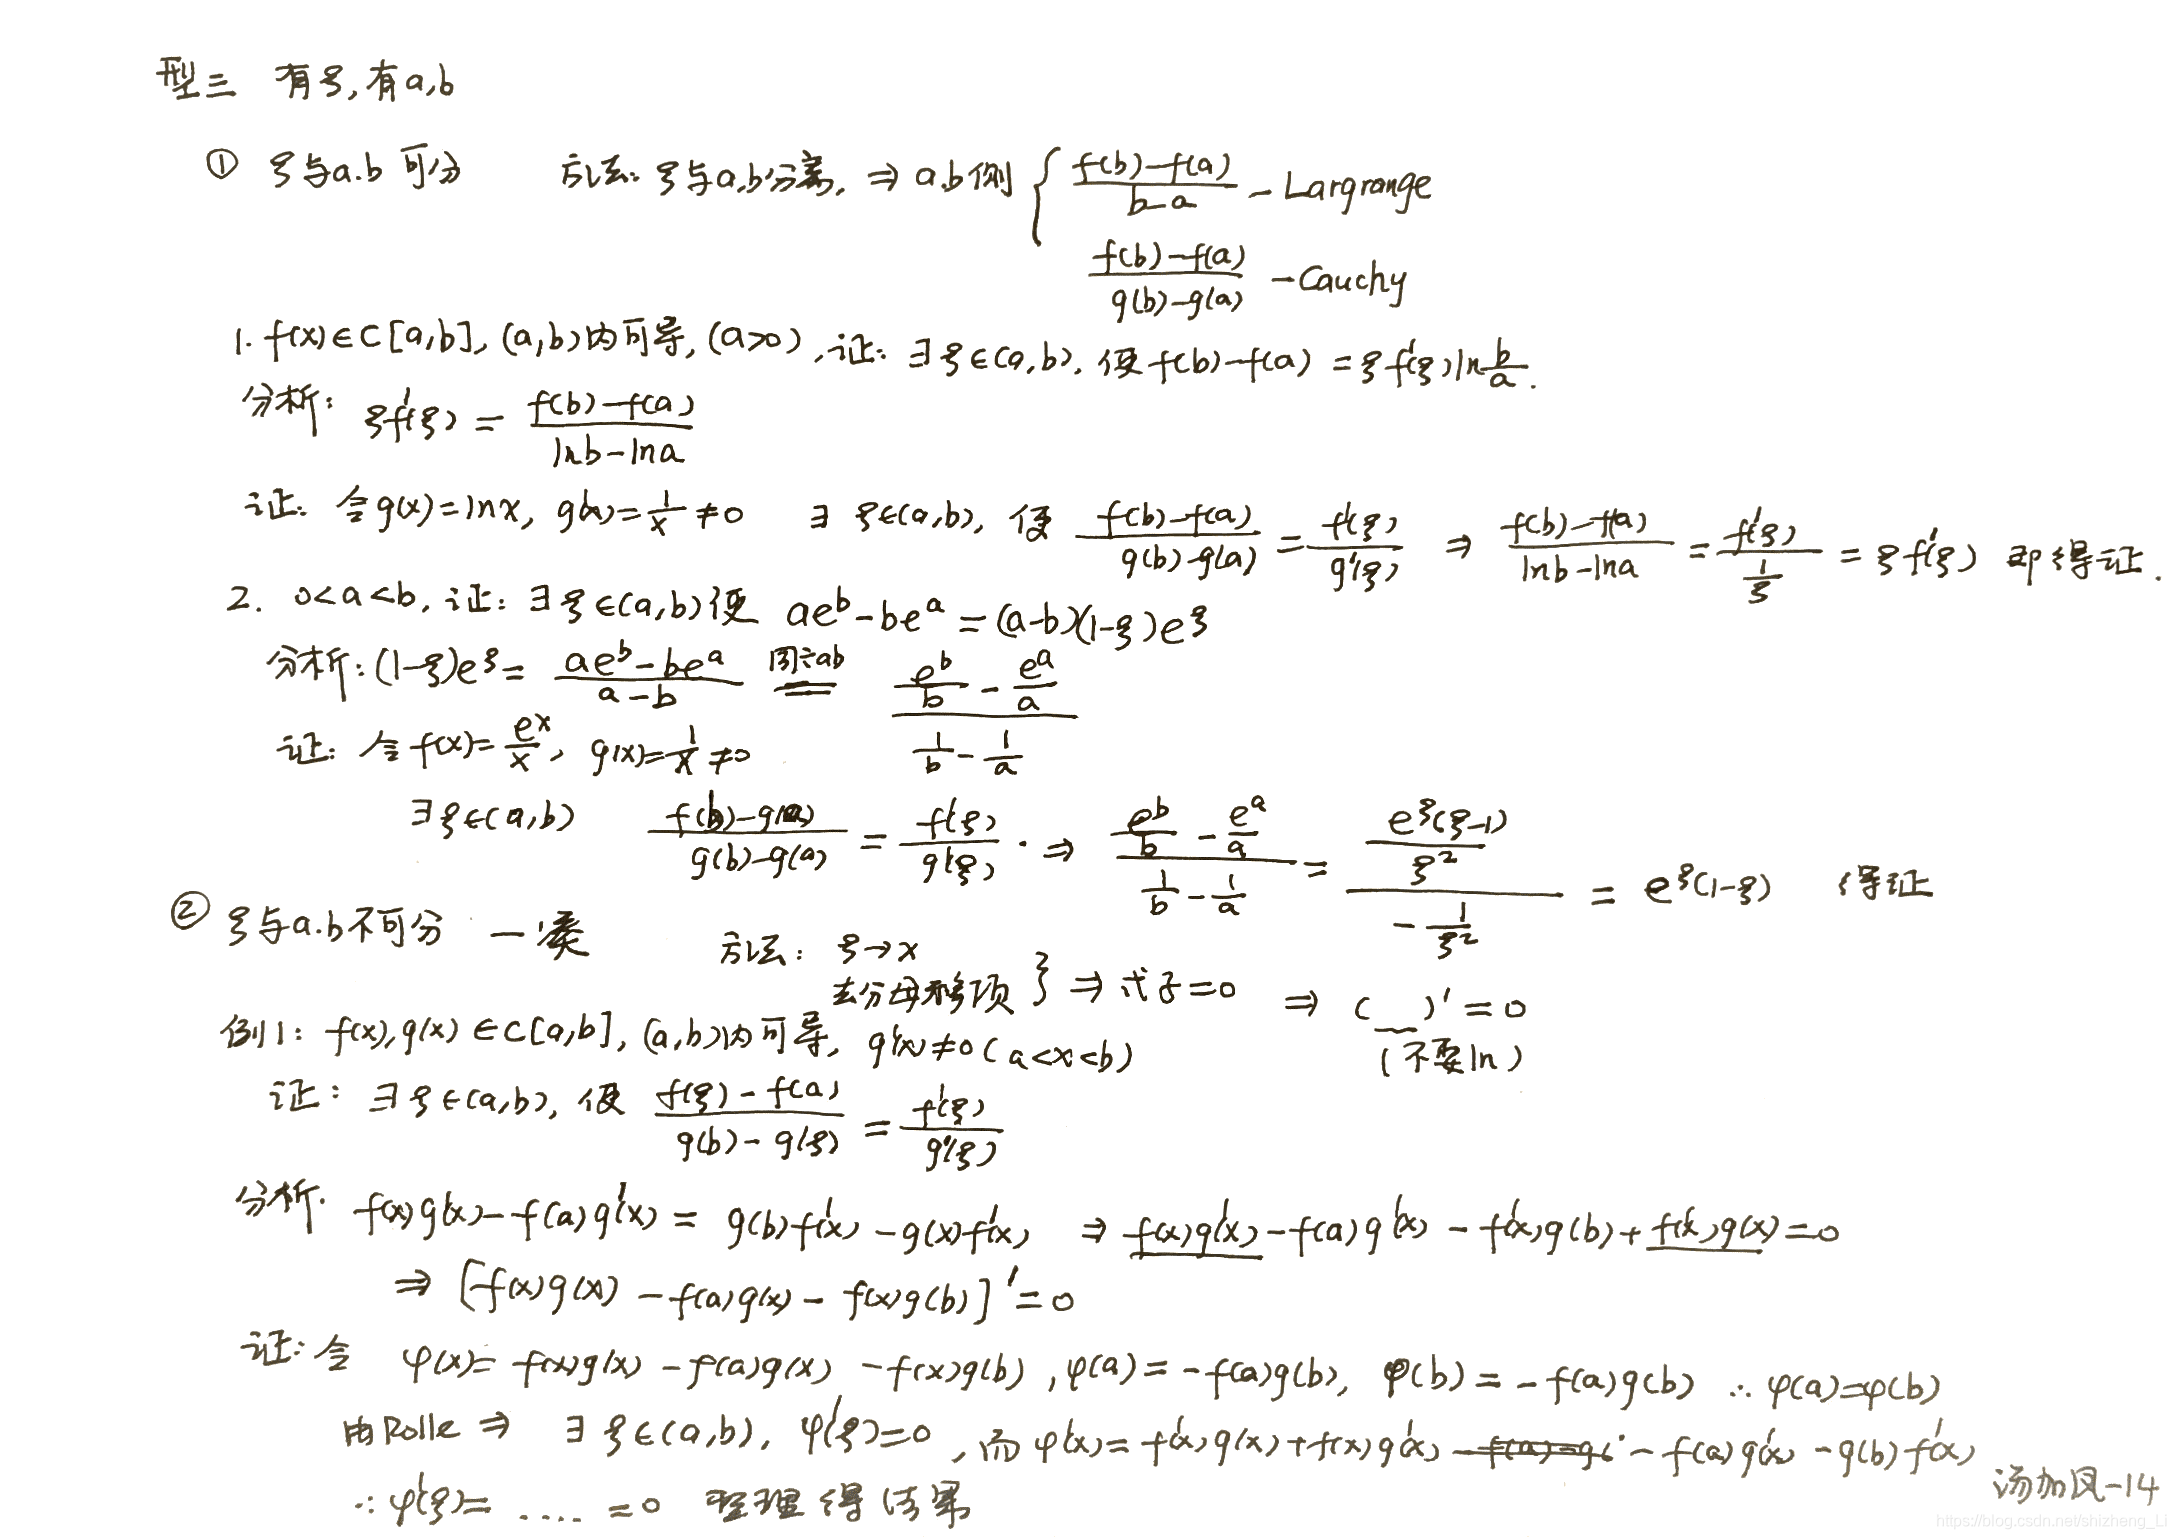 型三 有ξ,有a,b
① ξ与a.b 可分 方法: ξ与a,b分离, ⇒ a,b侧 { (f(b)-f(a))/(b-a) - Largrange
(f(b)-f(a))/(g(b)-g(a)) - Cauchy
1. f(x)∈C[a,b], (a,b)内可导, (a>0), 证: ∃ξ∈(a,b), 使 f(b)-f(a) = ξf'(ξ)ln b/a.
分析: ξf'(ξ) = (f(b)-f(a))/(lnb-lna)
证: 令g(x)=lnx, g'(x)=1/x≠0 ∃ ξ∈(a,b), 使 (f(b)-f(a))/(g(b)-g(a)) = f'(ξ)/g'(ξ) ⇒ (f(b)-f(a))/(lnb-lna) = f'(ξ)/(1/ξ) = ξf'(ξ) 即得证.
2. 0<a<b, 证: ∃ξ∈(a,b)使 ae^b-be^a=(a-b)(1-ξ)e^ξ
分析: (1-ξ)e^ξ = (ae^b-be^a)/(a-b) 同÷ab == (e^b/b - e^a/a)/(1/b - 1/a)
证: 令 f(x)=e^x/x, g(x)=1/x≠0
∃ξ∈(a,b) (f(b)-g(a))/(g(b)-g(a)) = f'(ξ)/g'(ξ) . ⇒ (e^b/b - e^a/a)/(1/b - 1/a) = (e^ξ(ξ-1)/ξ²)/(-1/ξ²) = e^ξ(1-ξ) 得证
② ξ与a.b不可分 一凑 方法: ξ→x
去分母移项 } ⇒ 式子=0 ⇒ (__)'=0
(不要ln)
例1: f(x),g(x)∈C[a,b], (a,b)内可导, g'(x)≠0(a<x<b)
证: ∃ξ∈(a,b), 使 (f(ξ)-f(a))/(g(b)-g(ξ)) = f'(ξ)/g'(ξ)
分析. f(x)g'(x)-f(a)g'(x) = g(b)f'(x)-g(x)f'(x) ⇒ f(x)g'(x)-f(a)g'(x)-f'(x)g(b)+f'(x)g(x)=0
⇒ [f(x)g(x)-f(a)g(x)-f(x)g(b)]'=0
证: 令 φ(x)=f(x)g(x)-f(a)g(x)-f(x)g(b), φ(a)=-f(a)g(b), φ(b)=-f(a)g(b) ∴φ(a)=φ(b)
由Rolle ⇒ ∃ξ∈(a,b), φ'(ξ)=0, 而φ'(x)=f'(x)g(x)+f(x)g'(x)-f(a)g'(x)-g(b)f'(x)
∴φ'(ξ)= ..... =0 整理得结果
汤加凤-14
https://blog.csdn.net/shizheng_Li